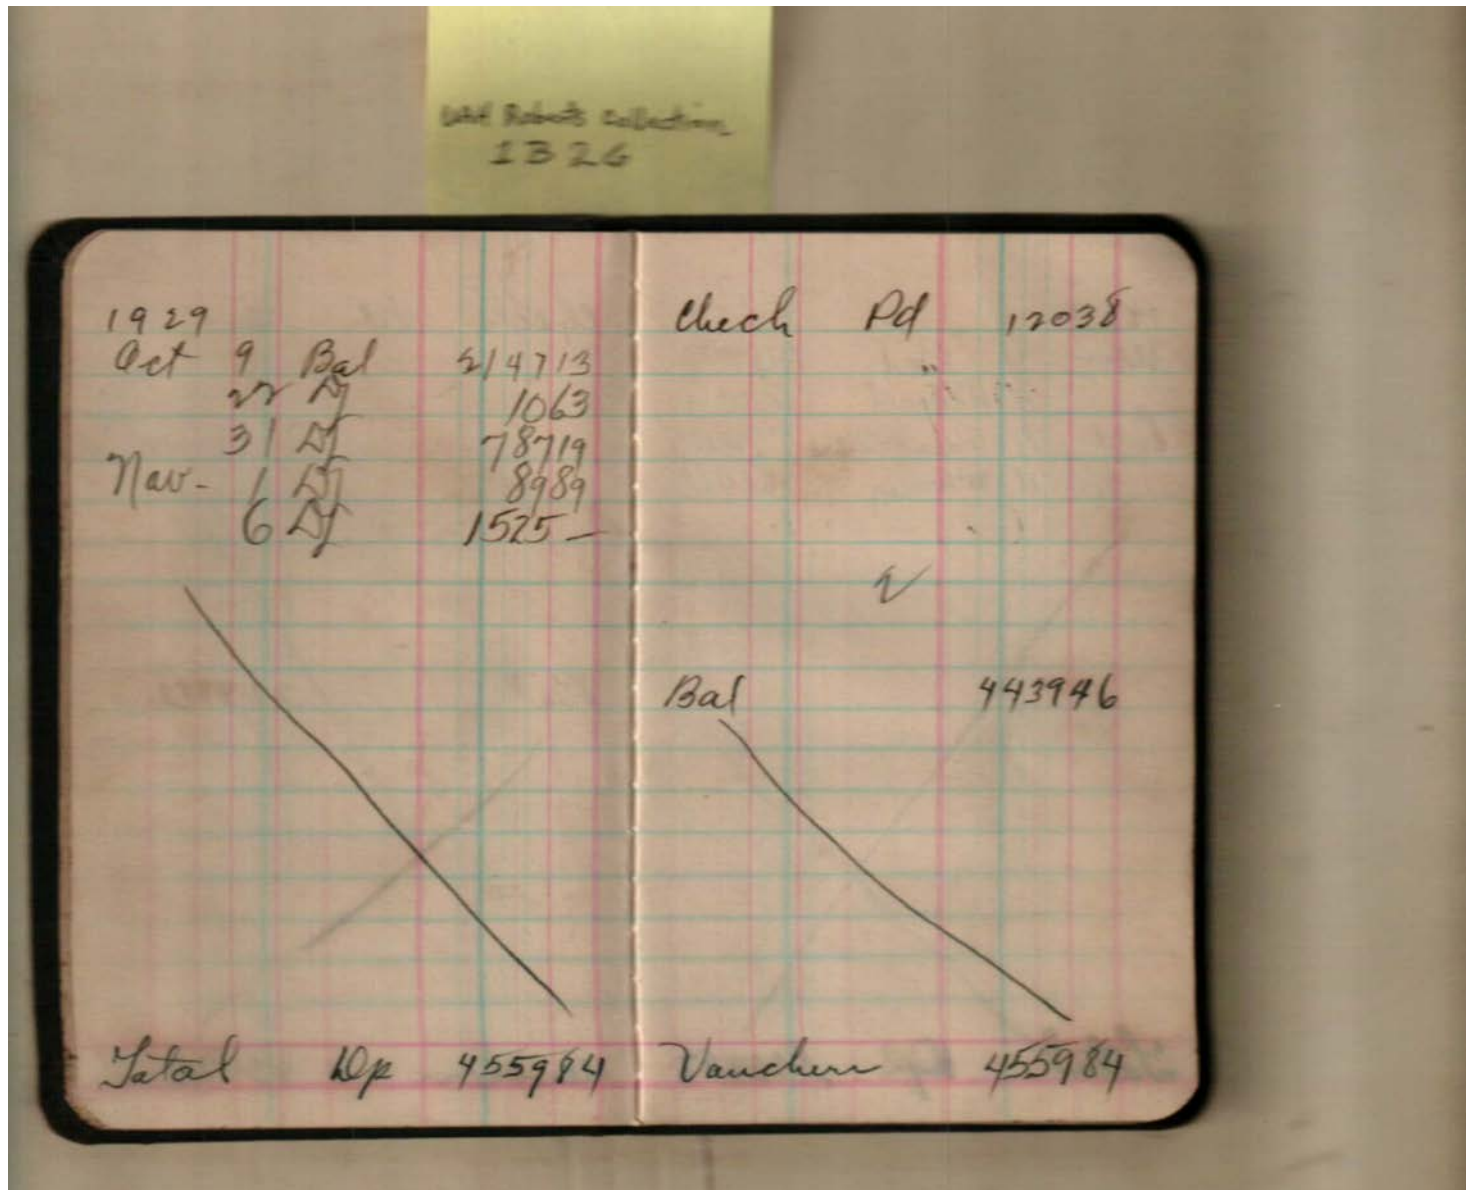 UAH Roberts Collection
1B26
1929
Oct 9 Bal 214713
22 Dp 1063
31 Dp 78719
Nov - 1 Dp 8989
6 Dp 1525 —
Total Dp 455984
Check Pd 12038
Bal 443946
Vouchers 455984